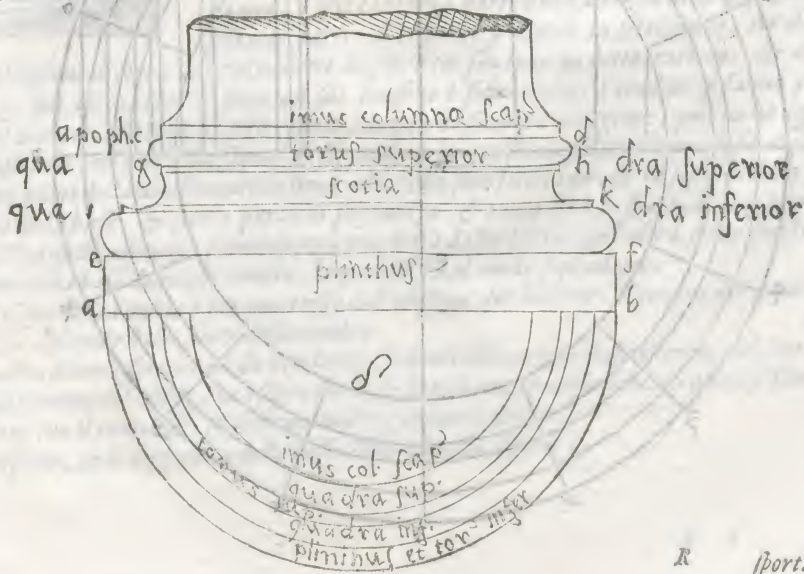 imus columnæ scap⁹
apoph. c d
torus superior
qua g h dra superior
scotia
qua k dra inferior
e f
plinthus
a b
imus col. scap⁹
quadra sup.
torus sup.
quadra inf.
plinthus et tor⁹ infer
R sport.